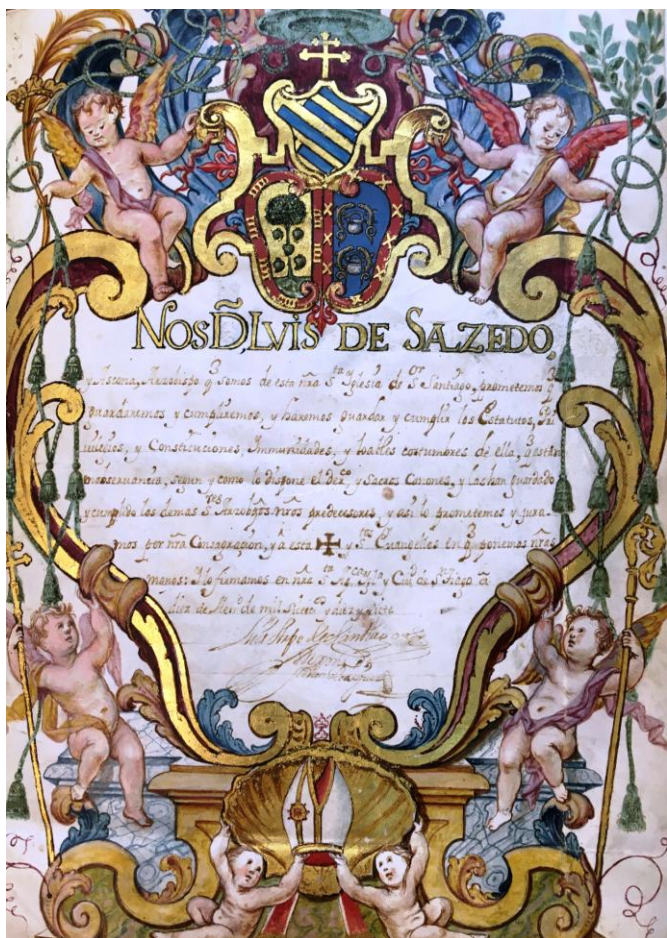 NOS D. LVIS DE SALZEDO,
y Ascona, Arzobispo q̃ somos de esta nr̃a S.ta y Iglesia de S.or Santiago, prometemos q̃
guardaremos y cumpliremos, y haremos guardar y cumplir los Estatutos, Pri
uilejios, y Constituciones, Immunidades, y loables costumbres de ella, q̃ estèn
inobseruancia, segun y como lo dispone el der.co y Sacros Canones, y las han guardado
y cumplido los demas S.res Arzobpõs. nr̃os predecesores, y asi lo prometemos y jura-
mos por nr̃a Consagracion, y a esta ✠ y S.tos Euangelios en q̃ ponemos nr̃as
manos: Y lo firmamos en nr̃a S.ta y Ciu.d de S.tiago à
diez de de mil siete.os y diez y siete
Luis Arzobpõ